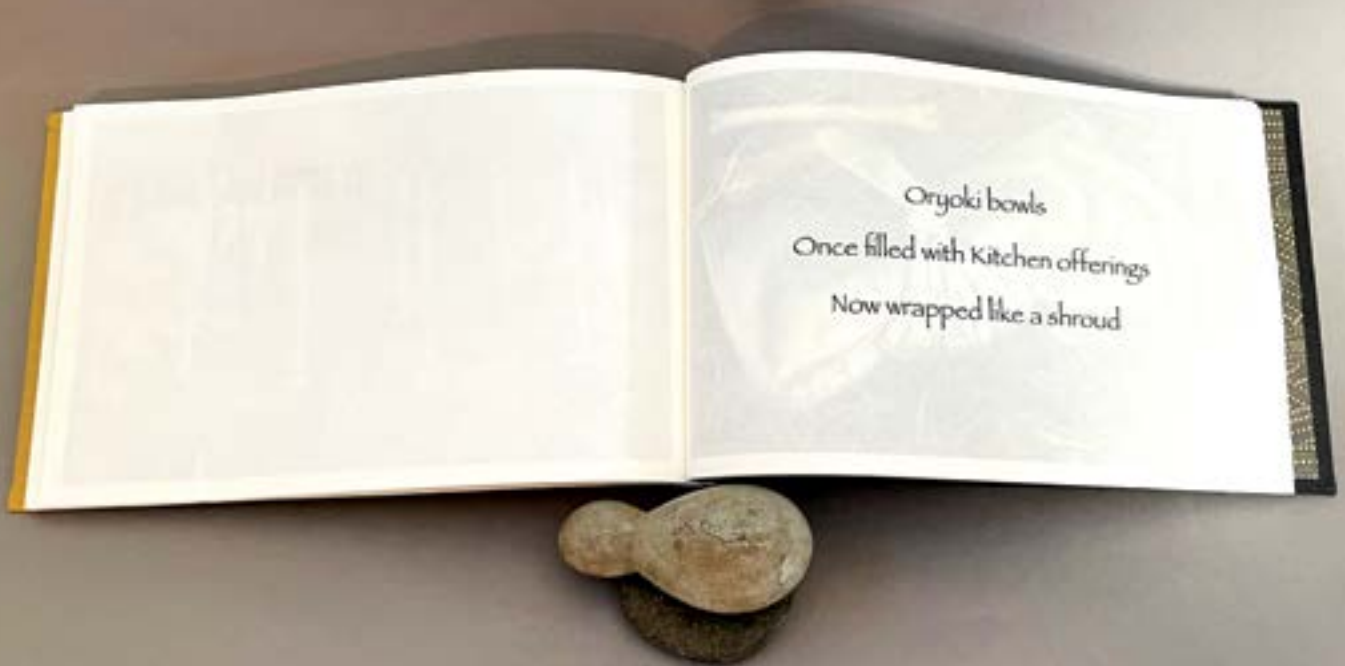 Oryoki bowls
Once filled with Kitchen offerings
Now wrapped like a shroud